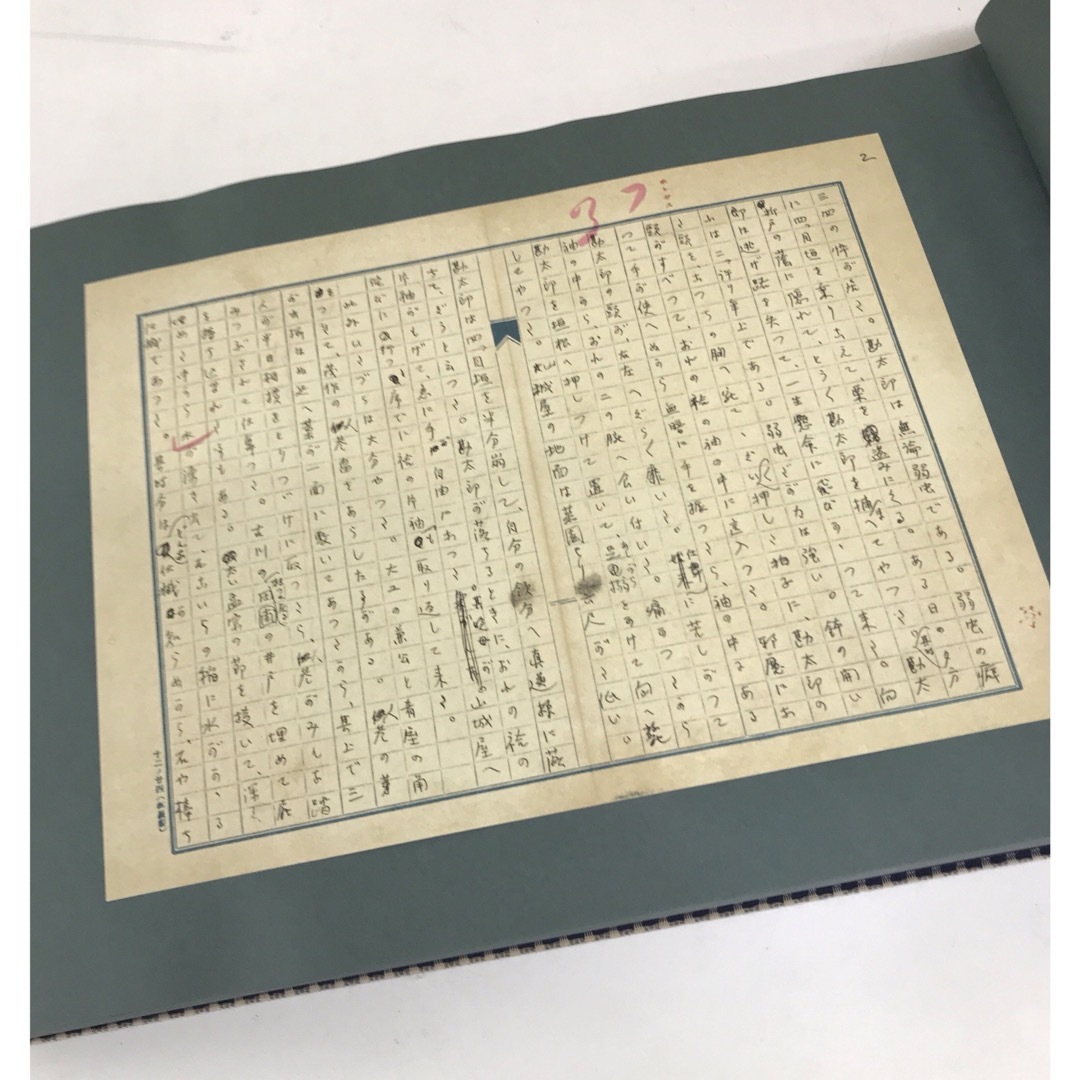 2
三四の倅が居た。勘太郎は無論弱虫である。弱虫の癖
に四つ目垣を乗りこえて、栗を盗みにくる。ある日の夕方
折戸の蔭に隠れて、とう〱勘太郎を捕へてやつた。其時勘太
郎は逃げ路を失つて、一生懸命に飛びかゝつて来た。向
ふは二つ許り年上である。弱虫だが力は強い。鉢の開い
た頭を、こつちの胸へ宛てゝぐい〱押した拍子に、勘太郎の
頭がすべつて、おれの袷の袖の中に這入つた。邪魔にな
つて手が使へぬから、無暗に手を振つたら、袖の中にある
勘太郎の頭が、左右へぐら〱靡いた。仕舞に苦しがつて
袖の中から、おれの二の腕へ食い付いた。痛かつたから
勘太郎を垣根へ押しつけて置いて、足搦をかけて向へ斃
してやつた。山城屋の地面は菜園より六尺がた低い
勘太郎は四つ目垣を半分崩して、自分の領分へ真逆様に落
ちて、ぐうと云つた。勘太郎が落ちるときに、おれの袷の
片袖がもげて、急に手が自由になつた。其晩母が山城屋へ
詫びに行つた序でに袷の片袖も取り返して来た。
此外いたづらは大分やつた。大工の兼公と肴屋の角
をつれて、茂作の人参畠をあらした事がある。人参の芽
が出揃はぬ処へ藁が一面に敷いてあつたから、其上で三
人が半日相撲をとりつゞけに取つたら、人参がみんな踏
みつぶされて仕舞つた。古川の持つて居る田圃の井戸を埋めて尻
を持ち込まれた事もある。太い孟宗の節を抜いて、深く
埋めた中から水が湧き出て、そこいらの稲に水がかゝる
仕掛であつた。其時分はどんな仕掛か知らぬから、石や棒ち